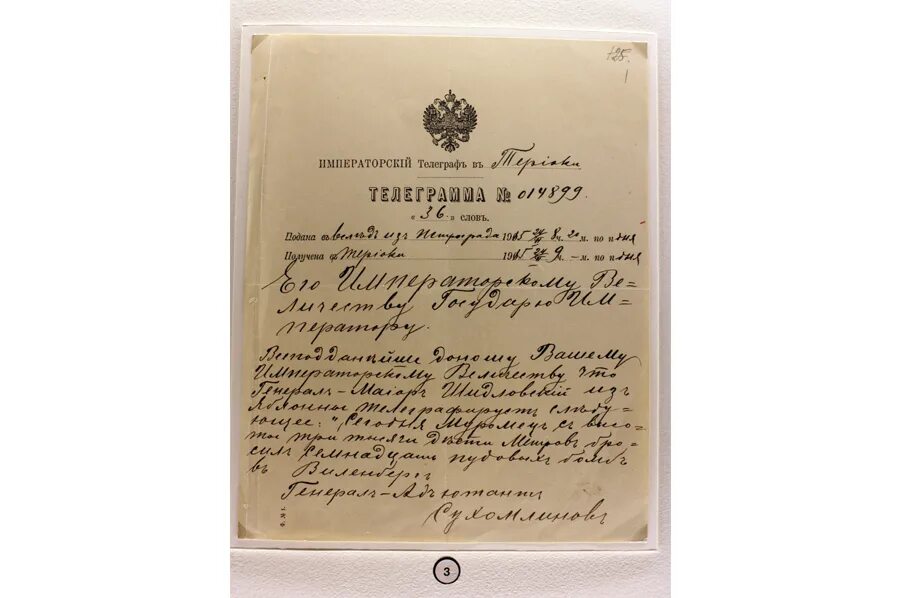 125.
1
ИМПЕРАТОРСКІЙ Телеграфъ въ Теріоки
ТЕЛЕГРАММА № 014899.
« 36 » словъ.
Подана въ вслѣдъ изъ Петрограда 1915 24 8 ч. 20 м. по п дня
Получена ф Теріоки 1915 24 9 – м. по п дня
Его Императорскому Ве-
личеству Государю Им-
ператору.
Всеподданнѣйше доношу Вашему
Императорскому Величеству что
Генералъ-Маіоръ Шидловскій изъ
Яблонны телеграфируетъ слѣду-
ющее: "Сегодня Муромецъ съ высо-
ты три тысячи двѣсти метровъ бро-
силъ семнадцать пудовыхъ бомбъ
въ Виленбергъ
Генералъ-Адъютантъ
Сухомлиновъ
3